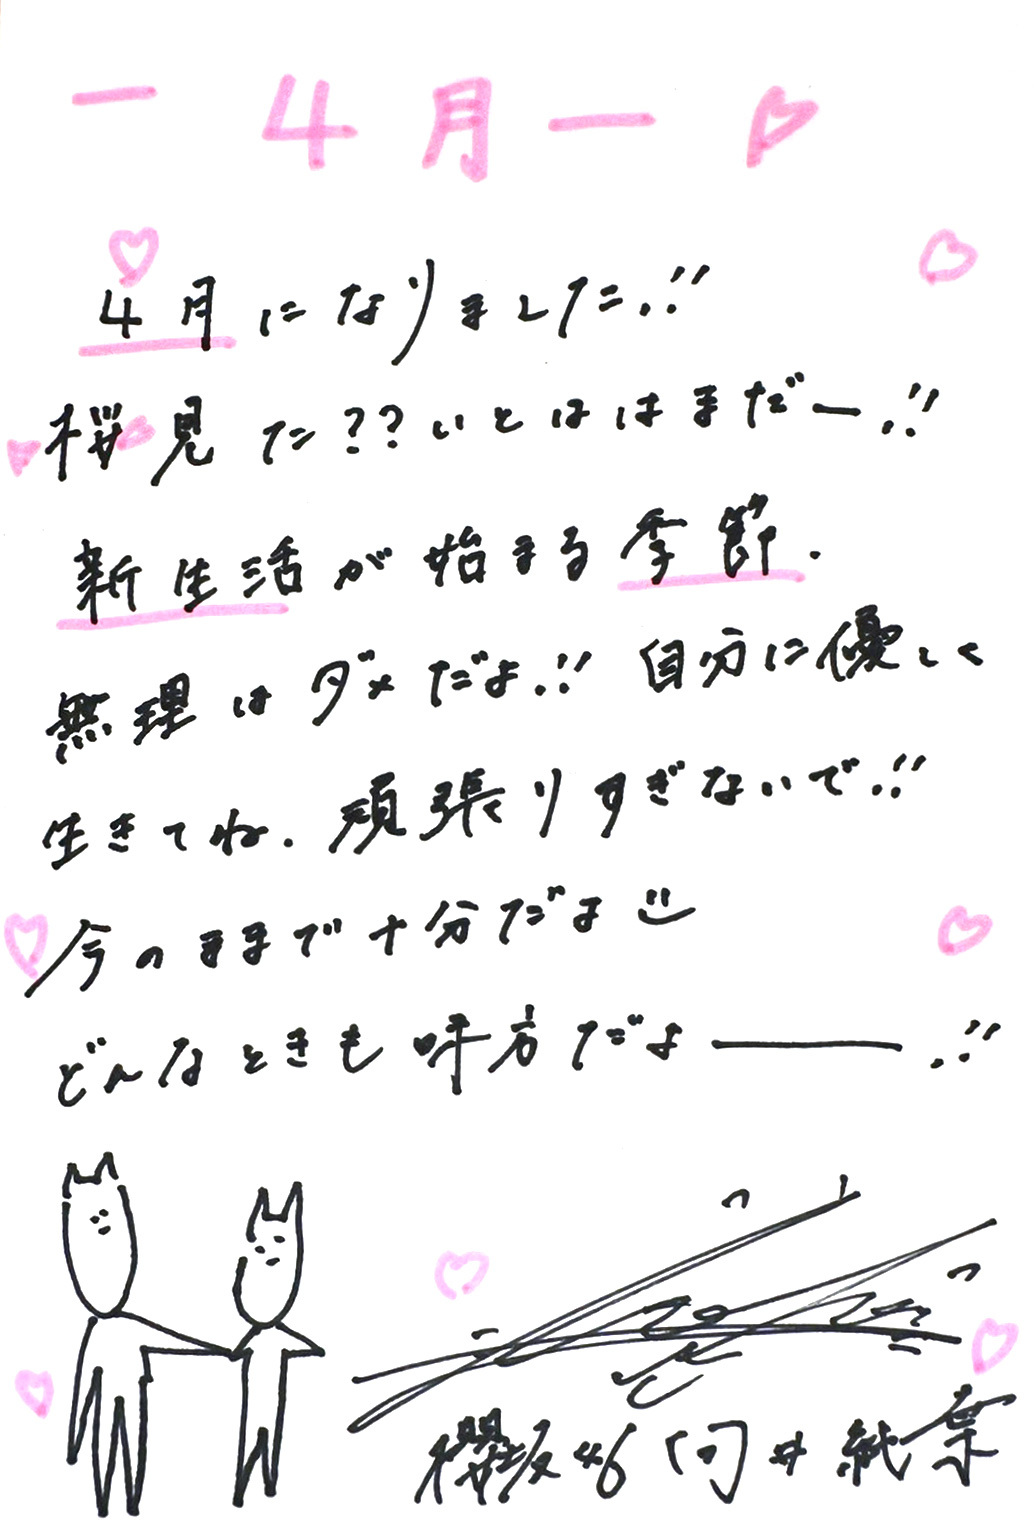 ー4月ー
4月になりました.!!
桜見た??いとははまだー.!!
新生活が始まる季節.
無理はダメだよ.!! 自分に優しく
生きてね.頑張りすぎないで.!!
今のままで十分だよ
どんなときも味方だよー.!!
櫻坂46 向井純葉